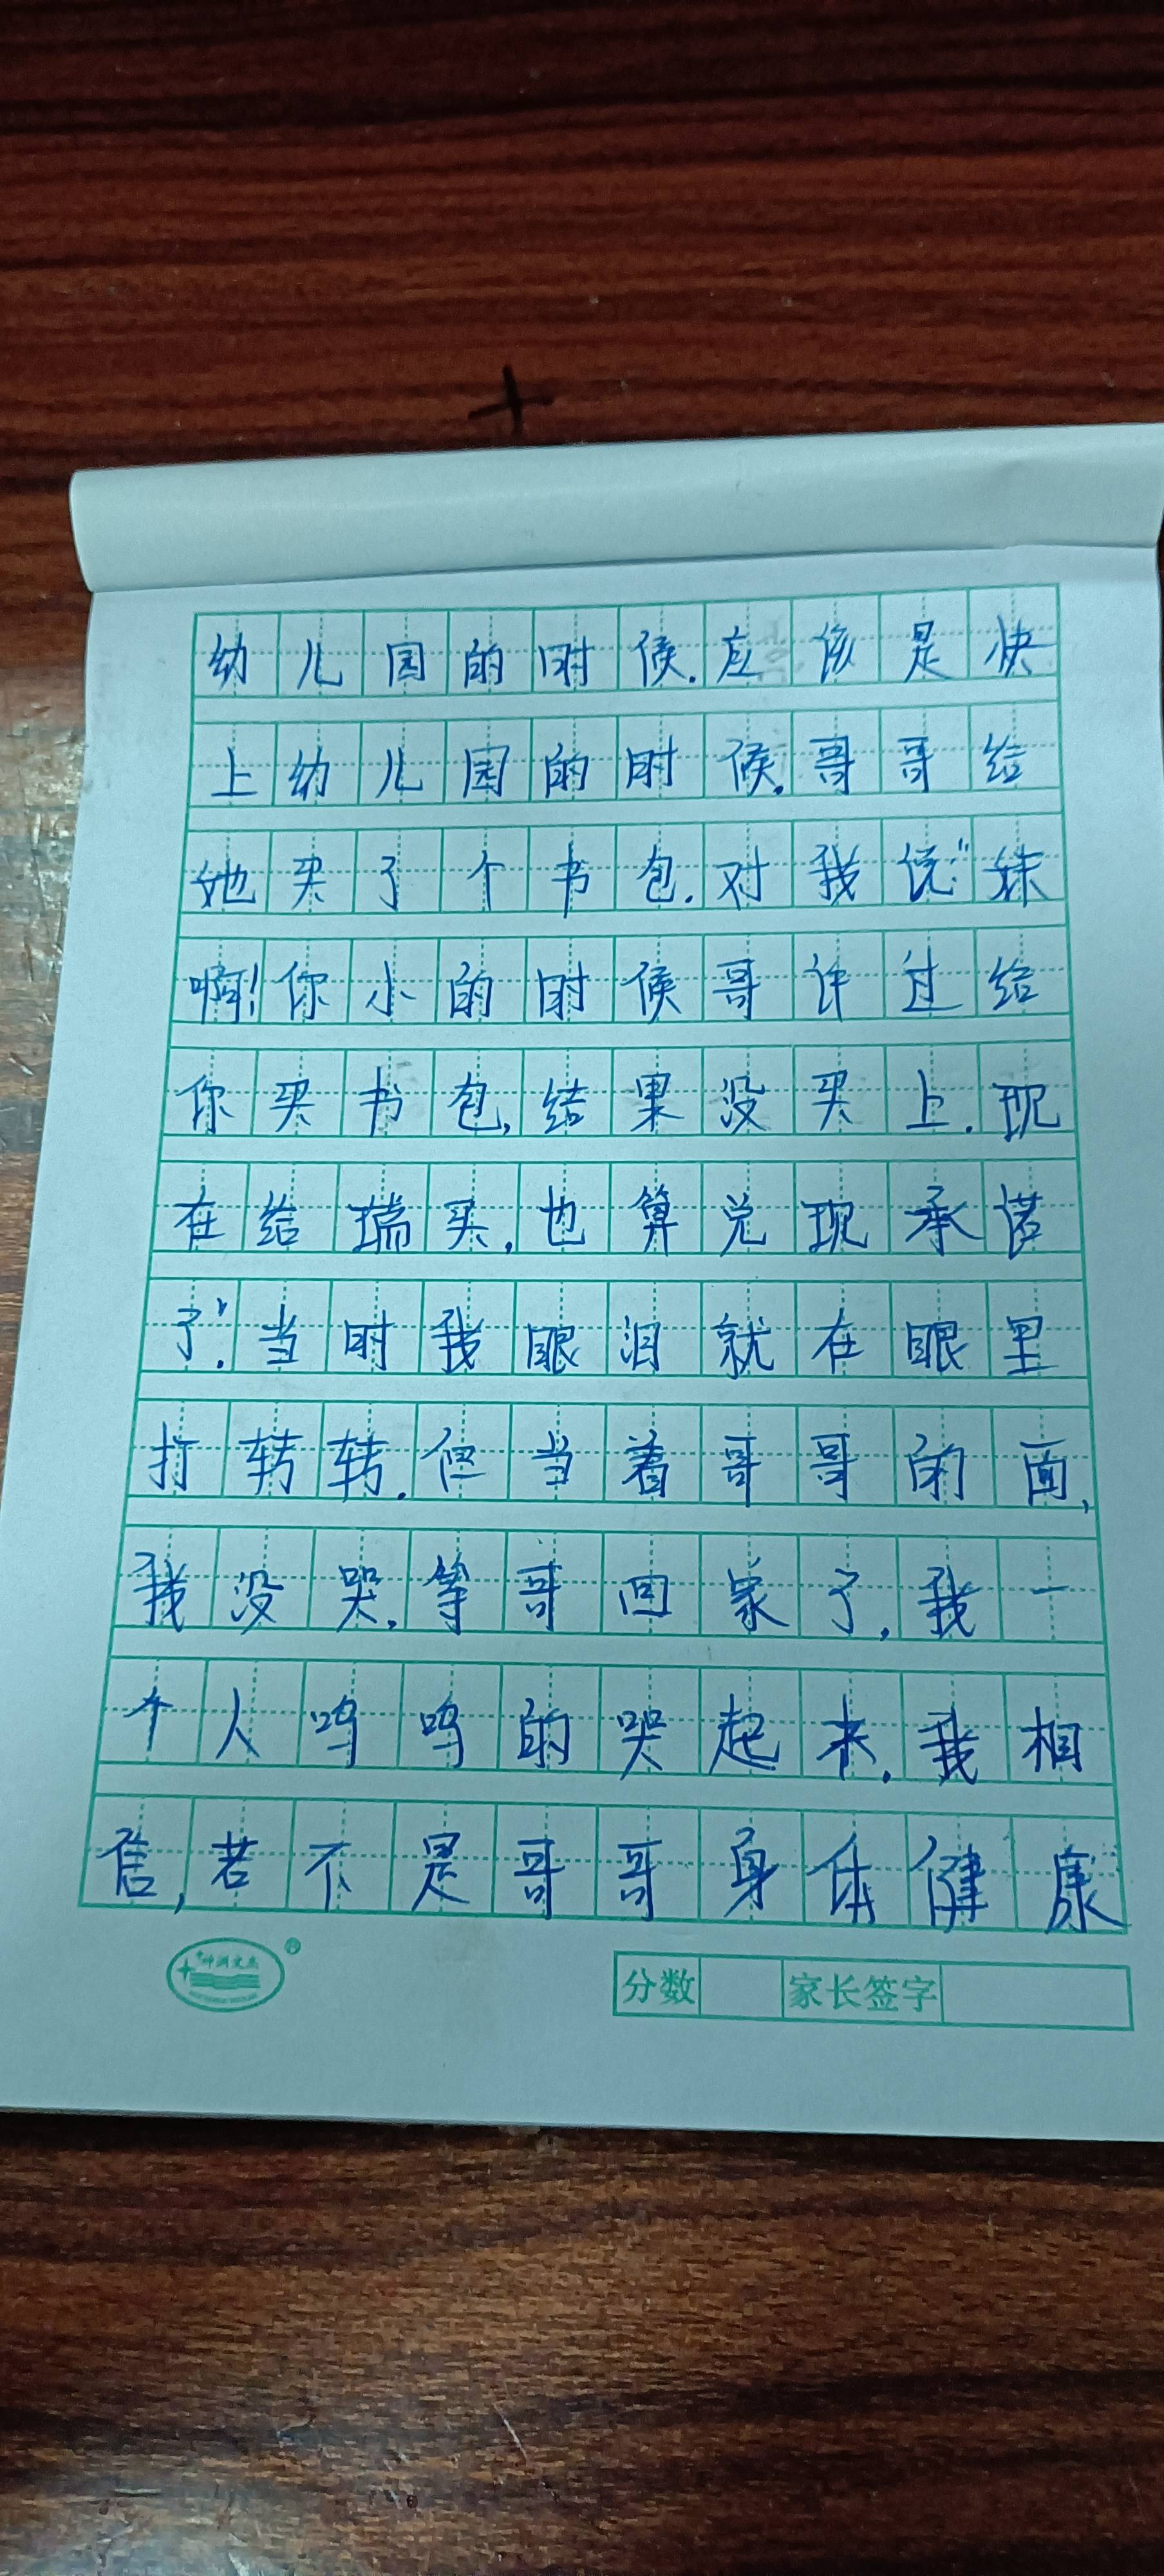 幼儿园的时候.应该是快
上幼儿园的时候.哥哥给
她买了个书包.对我说:"妹
啊!你小的时候哥许过给
你买书包,结果没买上.现
在给瑞买,也算兑现承诺
了."当时我眼泪就在眼里
打转转.但当着哥哥的面,
我没哭.等哥回家了,我一
个人呜呜的哭起来.我相
信,若不是哥哥身体健康
分数 家长签字